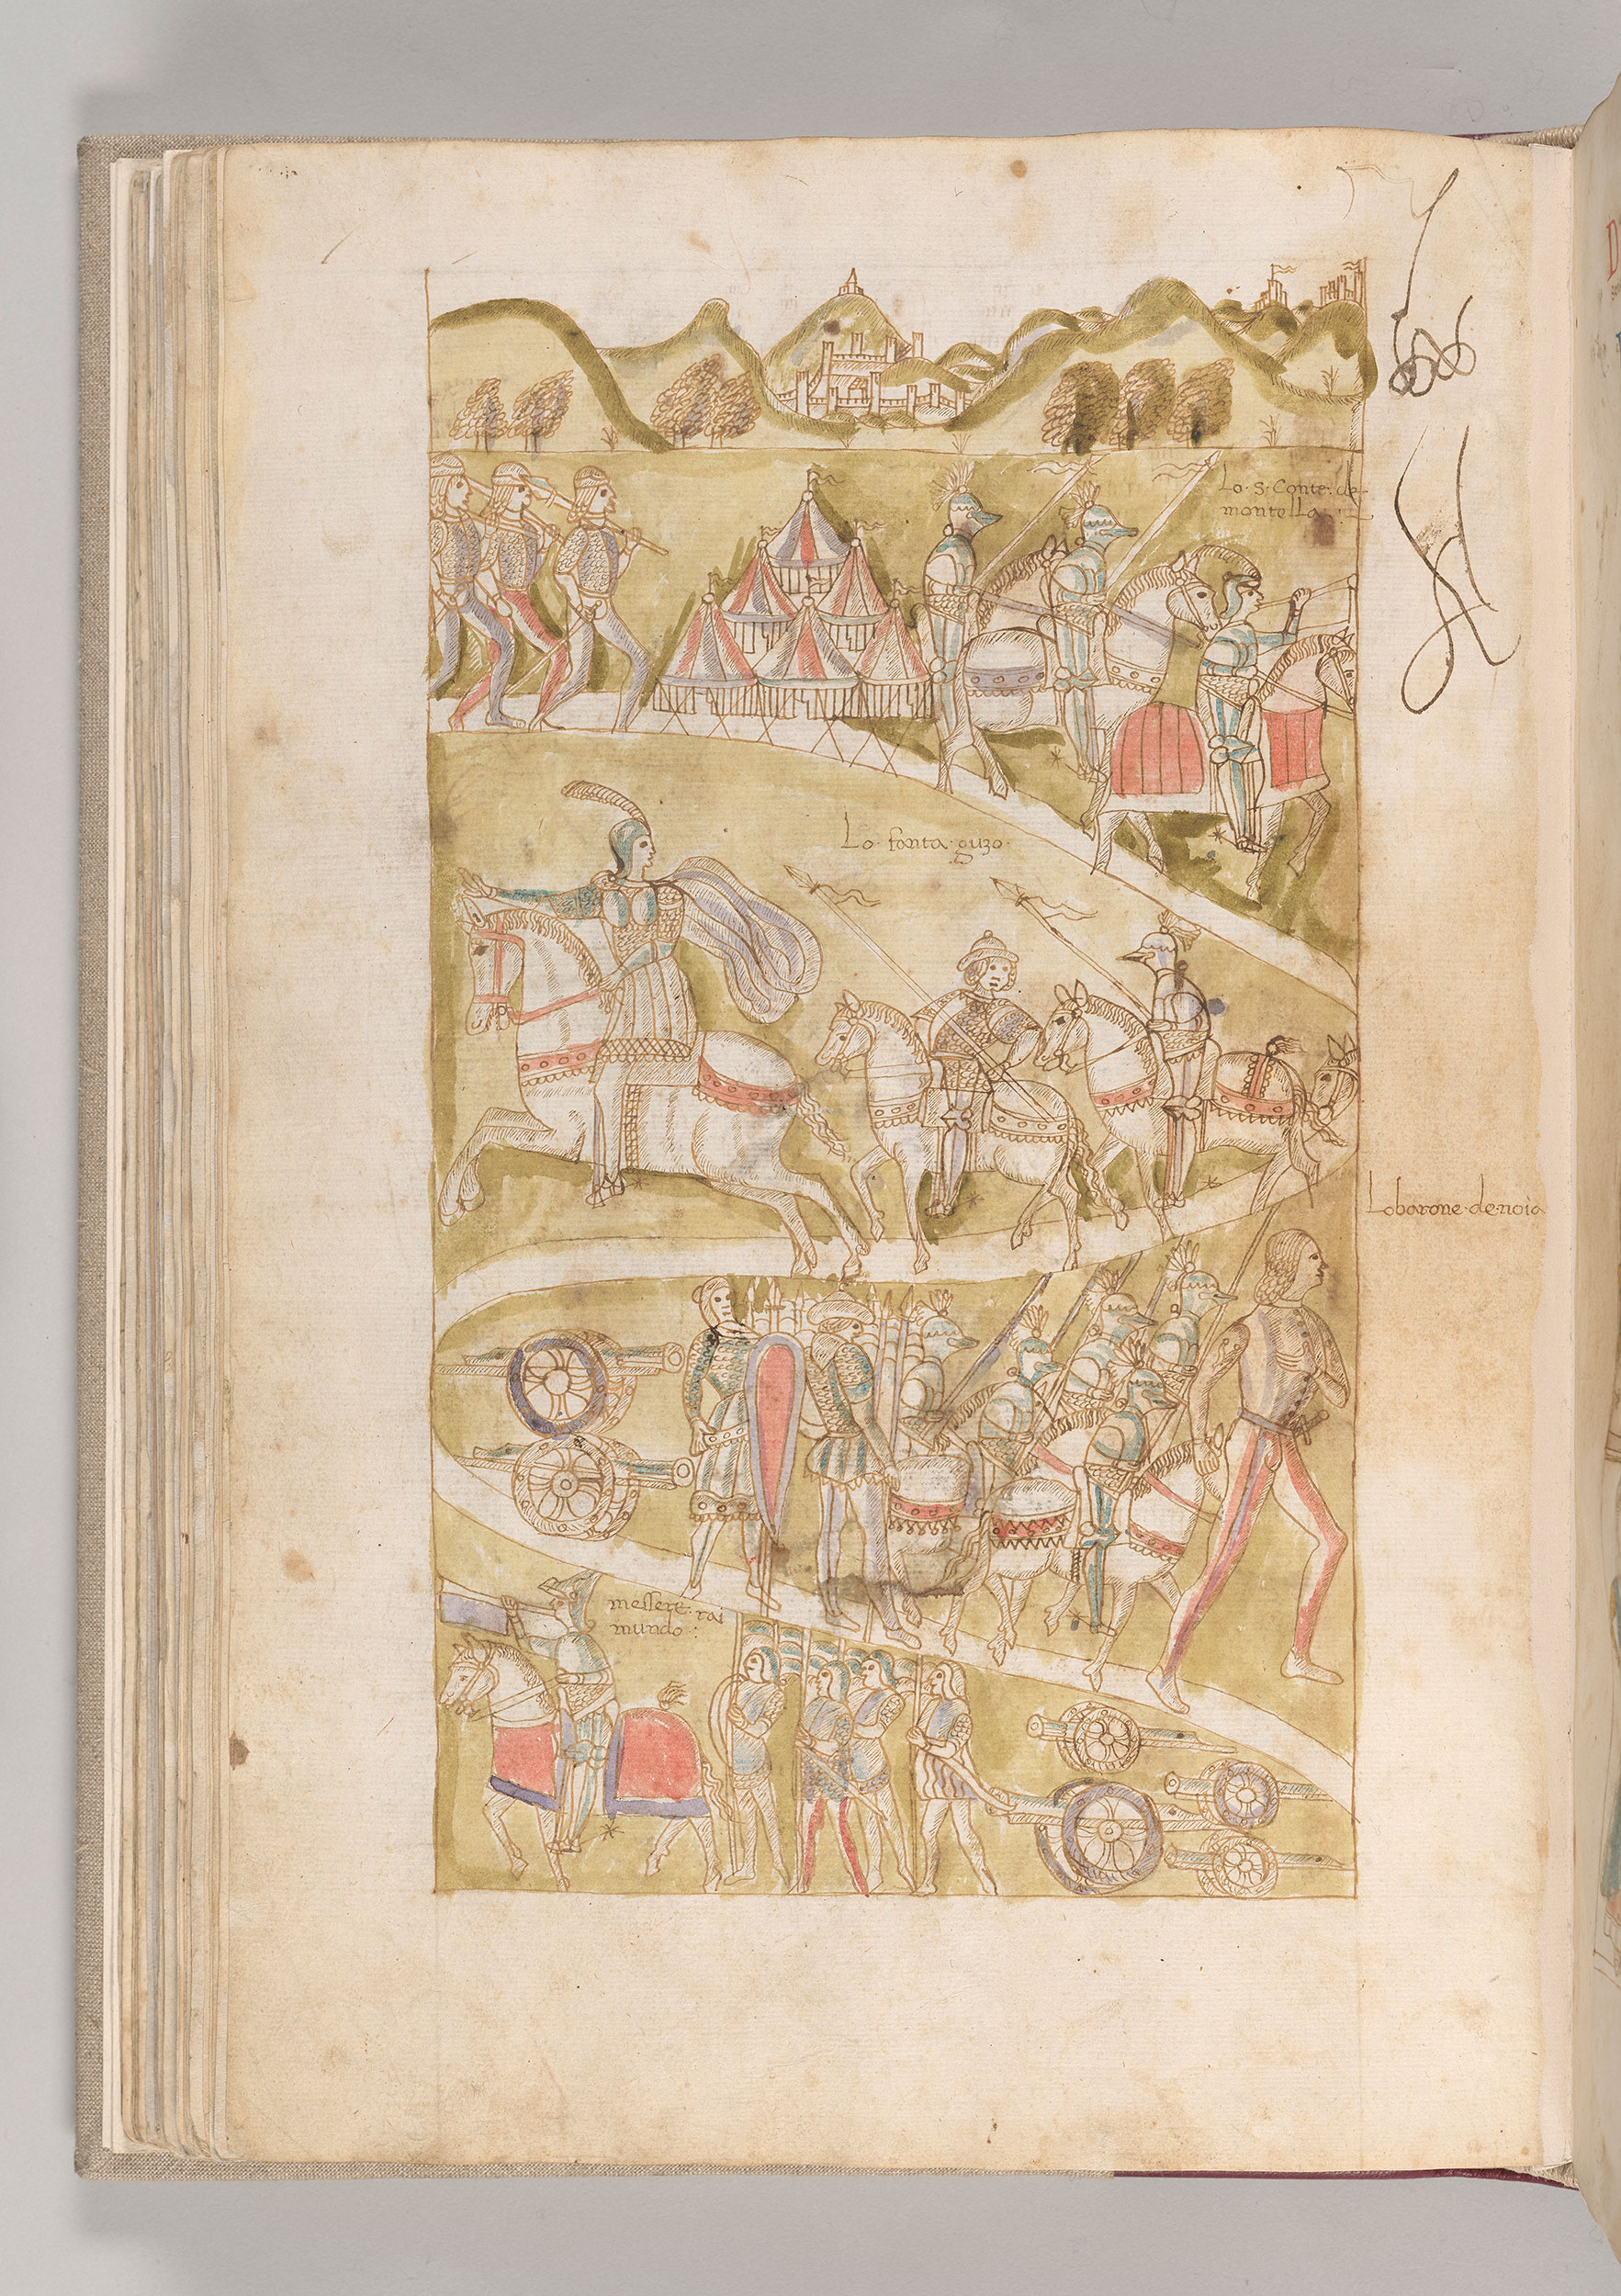 Lo · S · Conte · de
montella
Lo · fonta · guzo ·
Lobarone · de · noia
messere · rai
mundo :